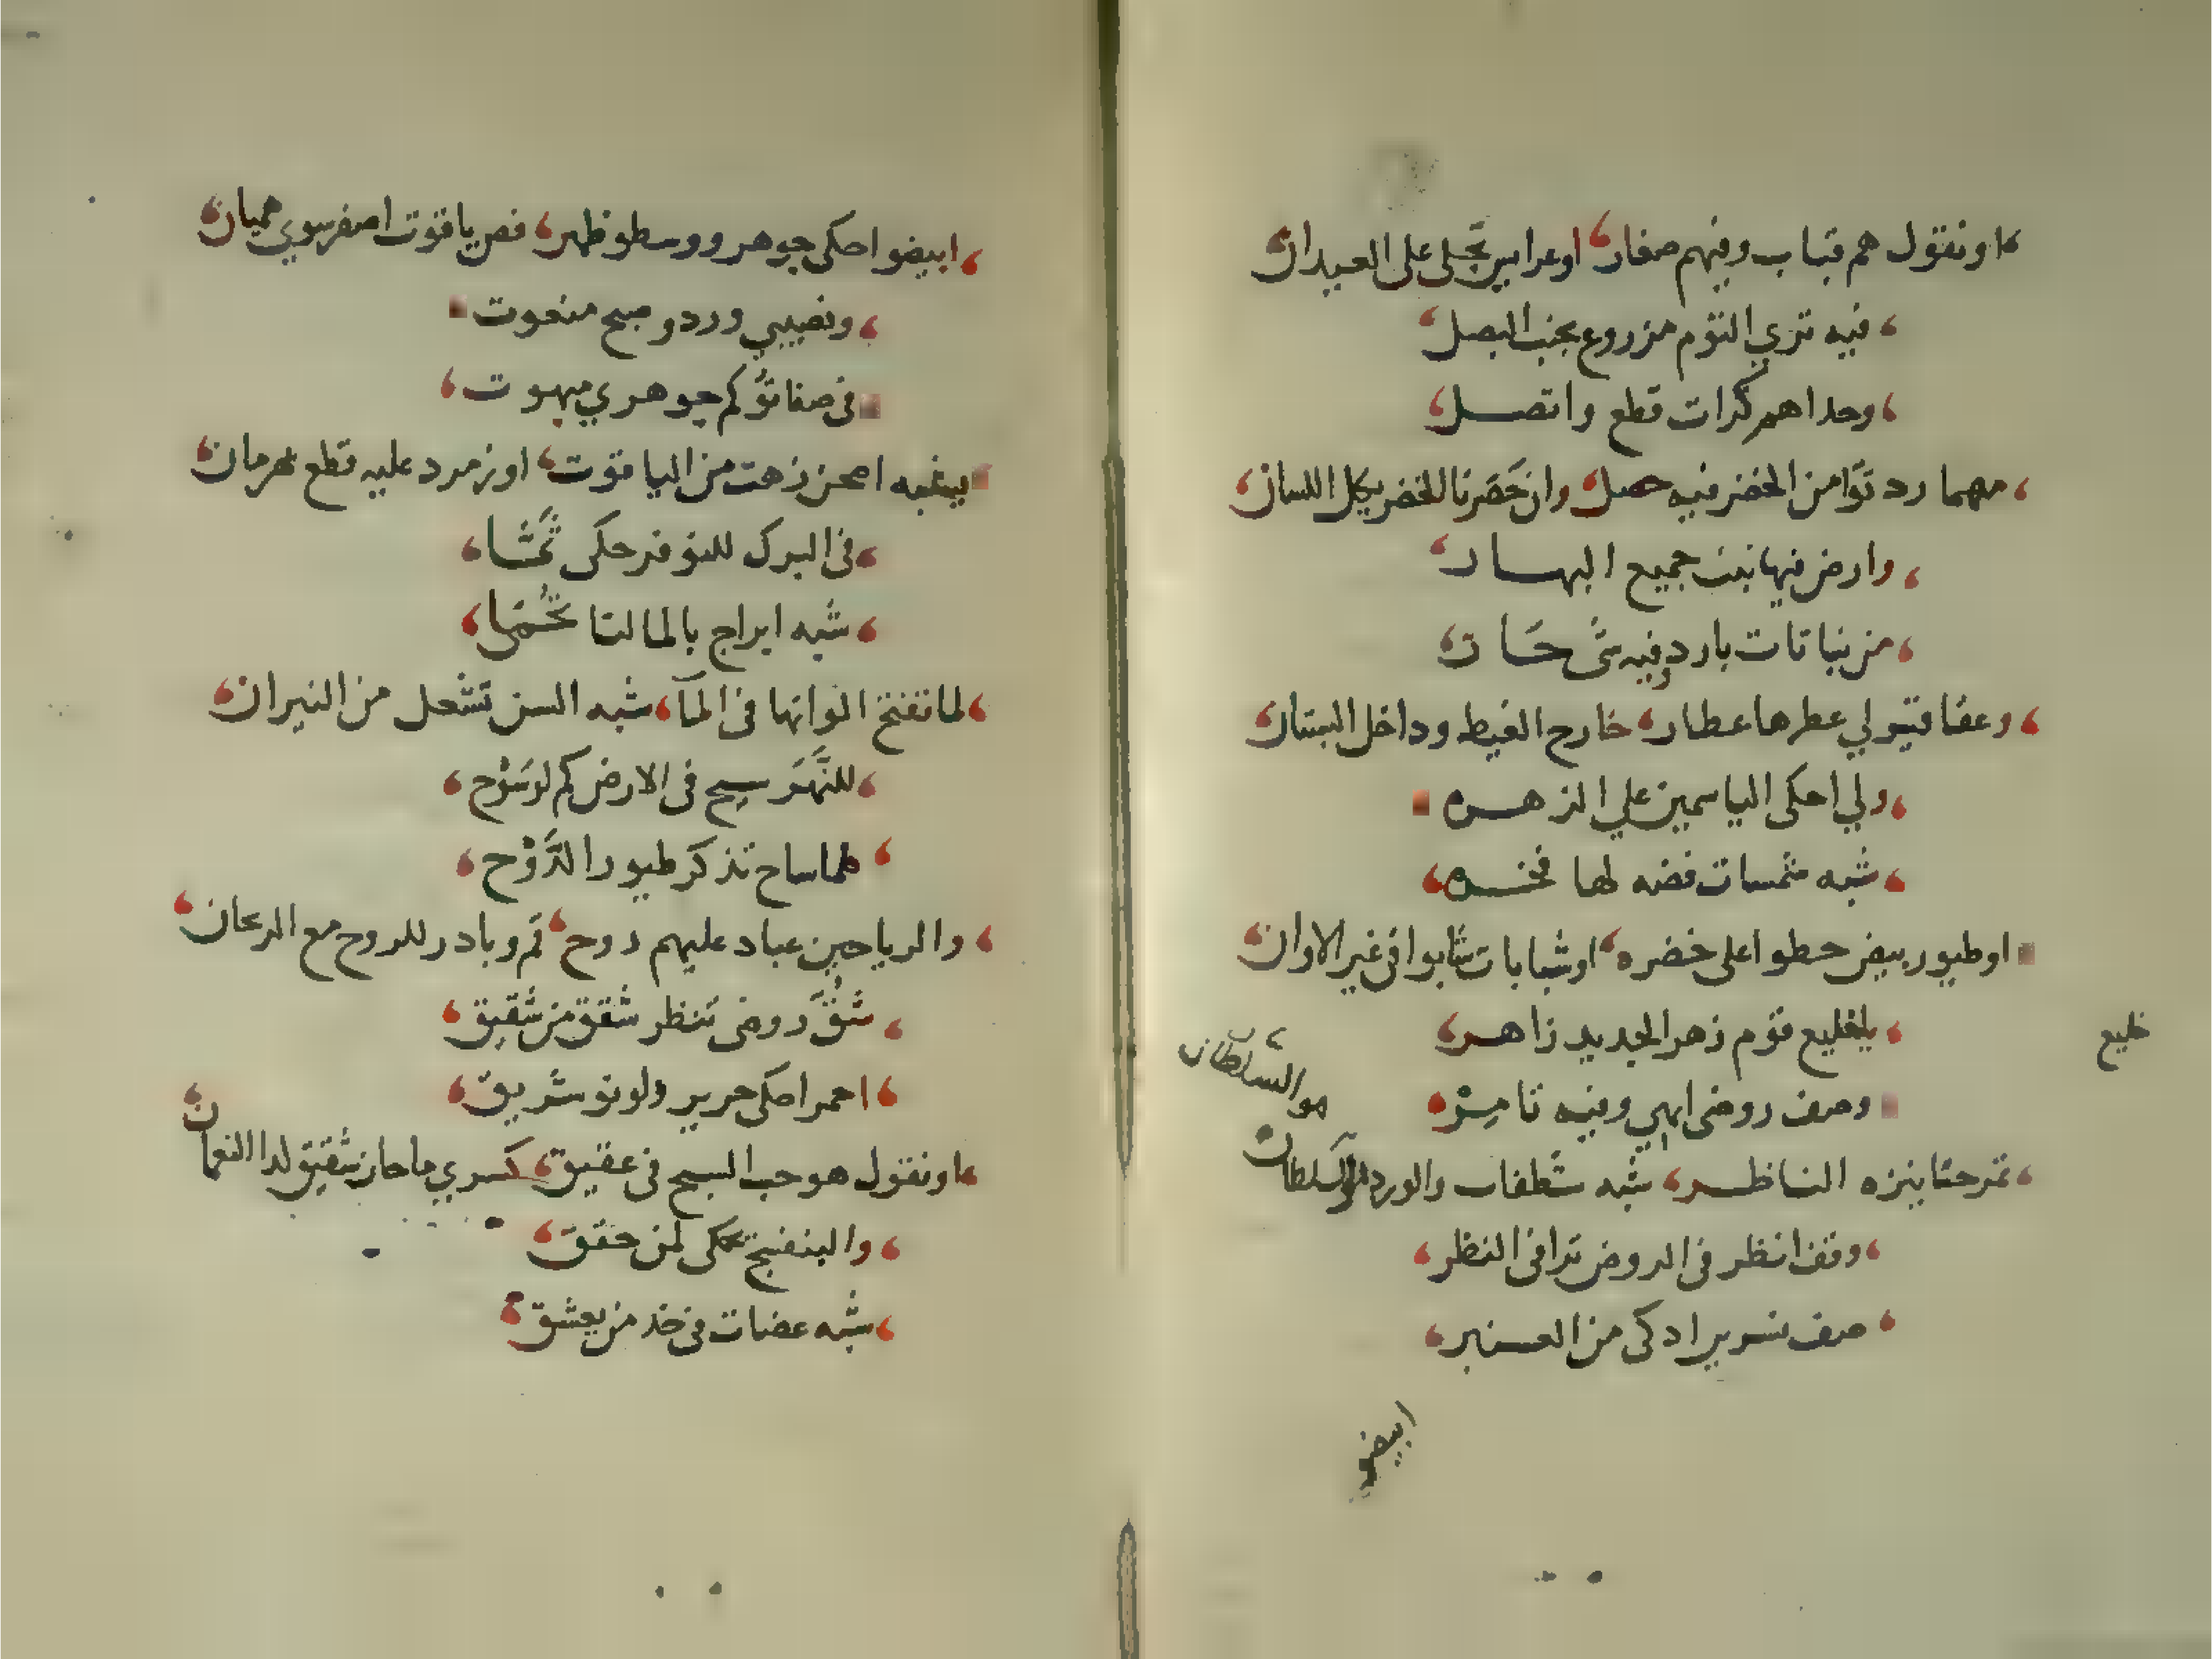 او نقول هم قباب وفيهم صغار اوعرايس تجلى على العيدان
فيه ترى الثوم مزروع بجنب البصل
وحداهم كرات قطع واتصل
مهما ردتوا من الخضر فيه حصل وان حَصَرنا للخضر يكل اللسان
وارض فيها نبت جميع البهار
من نباتات بارد وفيه شى حَار
وعقاقير لي عطرها عطار خارج الغيط وداخل البستان
ولي احكى الياسمين علي الزهره
شبه شمسات فضه لها فخره
او طيور بيض حطوا على خضره او شبابات شابوا فى غير الاوان
ياخليع قوم زهر الجديد زاهر
خليع
وصف روضى ابهي وفيه تامِرْ
هو السلطان
تمرحنا ينزه الناظر شبه شطفات والورد السلطان
وقف انظر فى الروض ترا فى النظر
صف نسرير ادكى من العنبر
ابيضو
ابيضو احكى جوهر ووسطو ظهر فص ياقوت اصفر سوي هميان
ونصيبي وردو صبح منعوت
فى صفاتوُ كم جوهري مبهوت
يشبه اصحن زهت من الياقوت او زمرد عليه قطع بهرمان
فى البرك للنوفر حكى ثَمَّا
شبه ابراج بالما لنا تُحْمَى
لما تفتح الوانها فى المآ شبه السن تشعل من النيران
للنَّهَر سيح فى الارض كم لو سَوْح
كلما ساح تذكر طيور الدَّوْح
والرياحين عباد عليهم روح قم وبادر للروح مع الريحان
شُقَّ روضى تنظر شقق من شقيق
احمر احكى حرير ولونو شريق
او نقول هو حب السبح فى عقيق كسري ما حاز شقيق لدا النعمان
والبنفسج تحكى لمن حقق
شبه عضات فى خد من يعشق